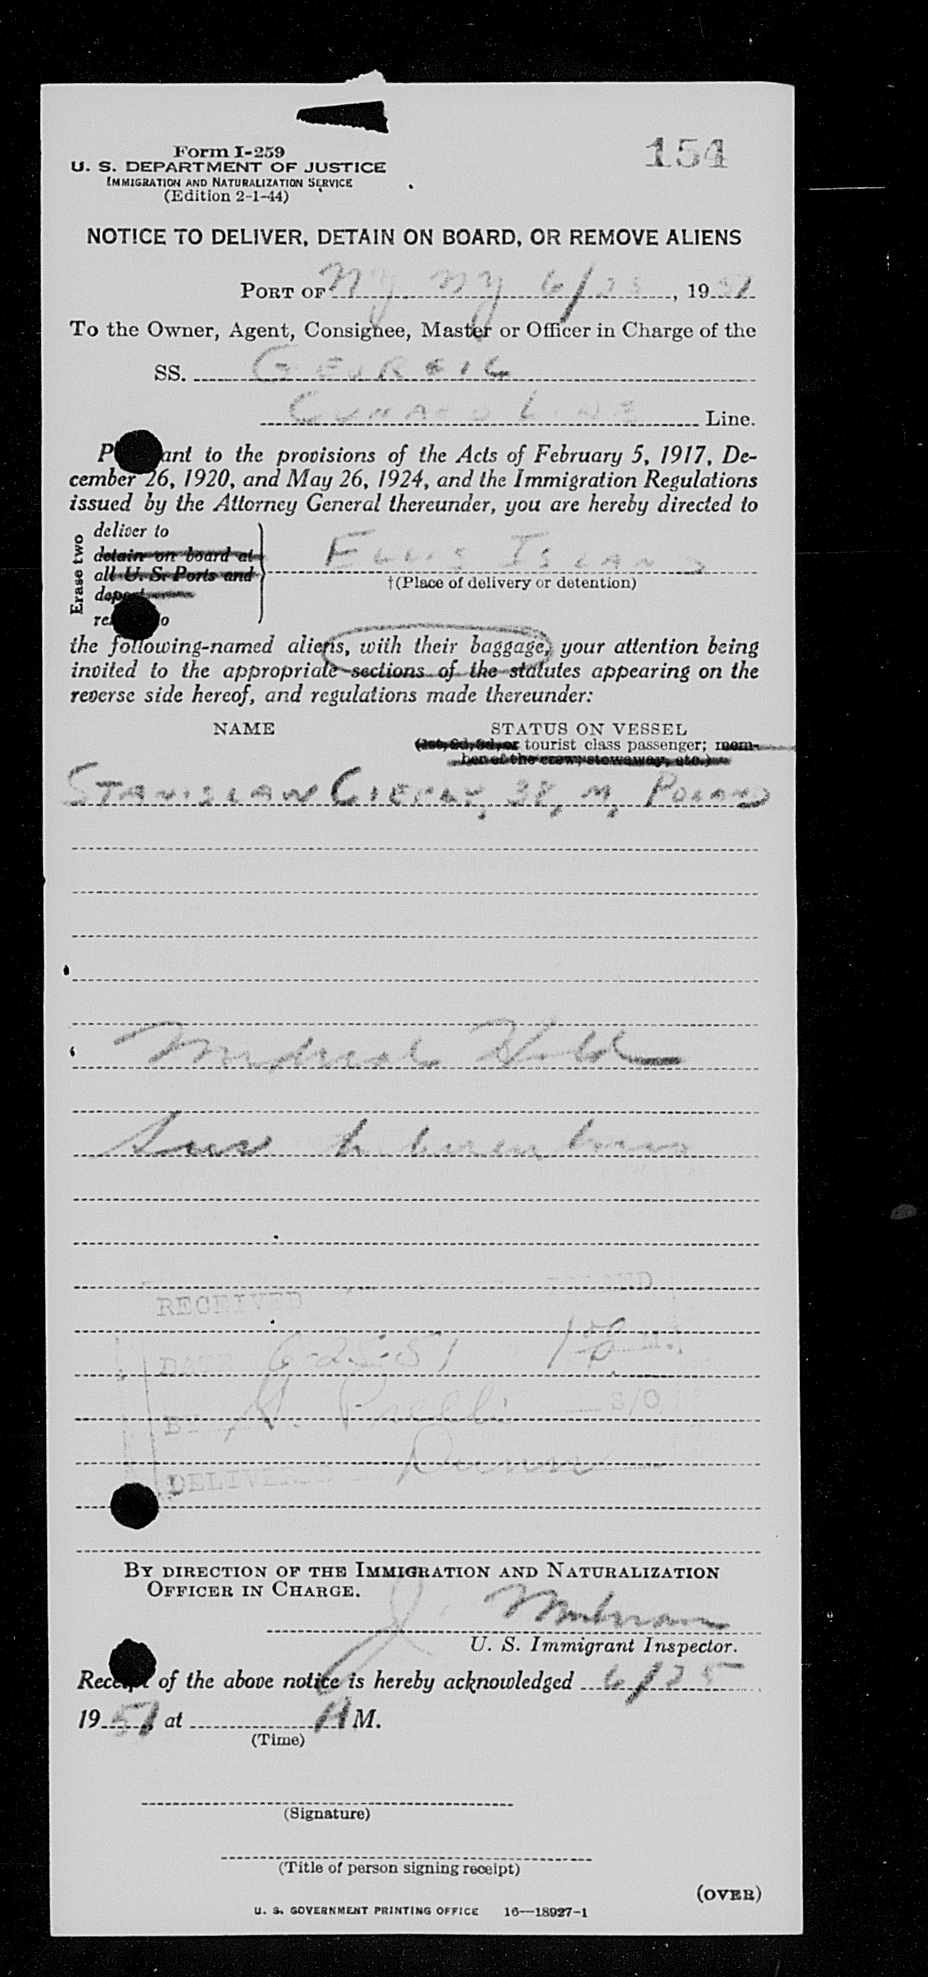 154
Form I-259
U. S. DEPARTMENT OF JUSTICE
IMMIGRATION AND NATURALIZATION SERVICE
(Edition 2-1-44)
NOTICE TO DELIVER, DETAIN ON BOARD, OR REMOVE ALIENS
PORT OF NY NY 6/25, 1951
To the Owner, Agent, Consignee, Master or Officer in Charge of the
SS. GEORGIC
CUNARD LINE Line.
P ant to the provisions of the Acts of February 5, 1917, De-
cember 26, 1920, and May 26, 1924, and the Immigration Regulations
issued by the Attorney General thereunder, you are hereby directed to
Erase two
deliver to
detain on board at
all U. S. Ports and
ELLIS ISLAND
†(Place of delivery or detention)
the following-named aliens, with their baggage, your attention being
invited to the appropriate sections of the statutes appearing on the
reverse side hereof, and regulations made thereunder:
NAME STATUS ON VESSEL
(1st, 2d, 3d, or tourist class passenger; mem-
ber of the crew, stowaway, etc.)
STANISLAW 38, M, POLAND
Medical Hold
RECEIVED ISLAND
DATE 6-25-51
BY S/O
DELIVERED Dunn
BY DIRECTION OF THE IMMIGRATION AND NATURALIZATION
OFFICER IN CHARGE.
U. S. Immigrant Inspector.
Receipt of the above notice is hereby acknowledged 6/25
1951, at A M.
(Time)
(Signature)
(Title of person signing receipt)
(OVER)
U. S. GOVERNMENT PRINTING OFFICE 16—18927-1